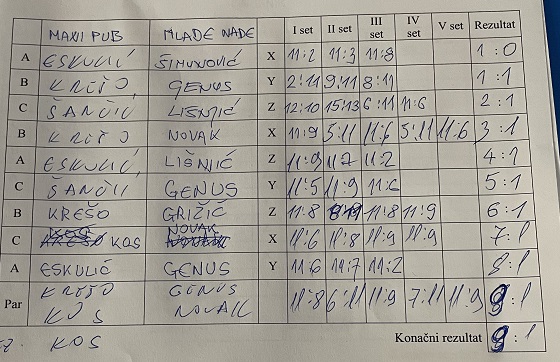 MAXI PUB MLADE NADE I set II set III set IV set V set Rezultat
A ESKULIĆ ŠIMUNOVIĆ X 11:2 11:3 11:8 1:0
B KREŠO GENUS Y 2:11 9:11 8:11 1:1
C ŠANČIĆ LIŠNJIĆ Z 12:10 15:13 6:11 11:6 2:1
B KREŠO NOVAK X 11:9 5:11 11:6 5:11 11:6 3:1
A ESKULIĆ LIŠNJIĆ Z 11:9 11:7 11:2 4:1
C ŠANČIĆ GENUS Y 11:5 11:9 11:6 5:1
B KREŠO GRIŽIĆ Z 11:8 11:8 11:9 6:1
C KOS NOVAK X 11:6 11:8 11:9 11:9 7:1
A ESKULIĆ GENUS Y 11:6 11:7 11:2 8:1
Par KREŠO GENUS 11:8 6:11 11:9 7:11 11:9 9:1
KOS NOVAK
Konačni rezultat 9:1
KOS